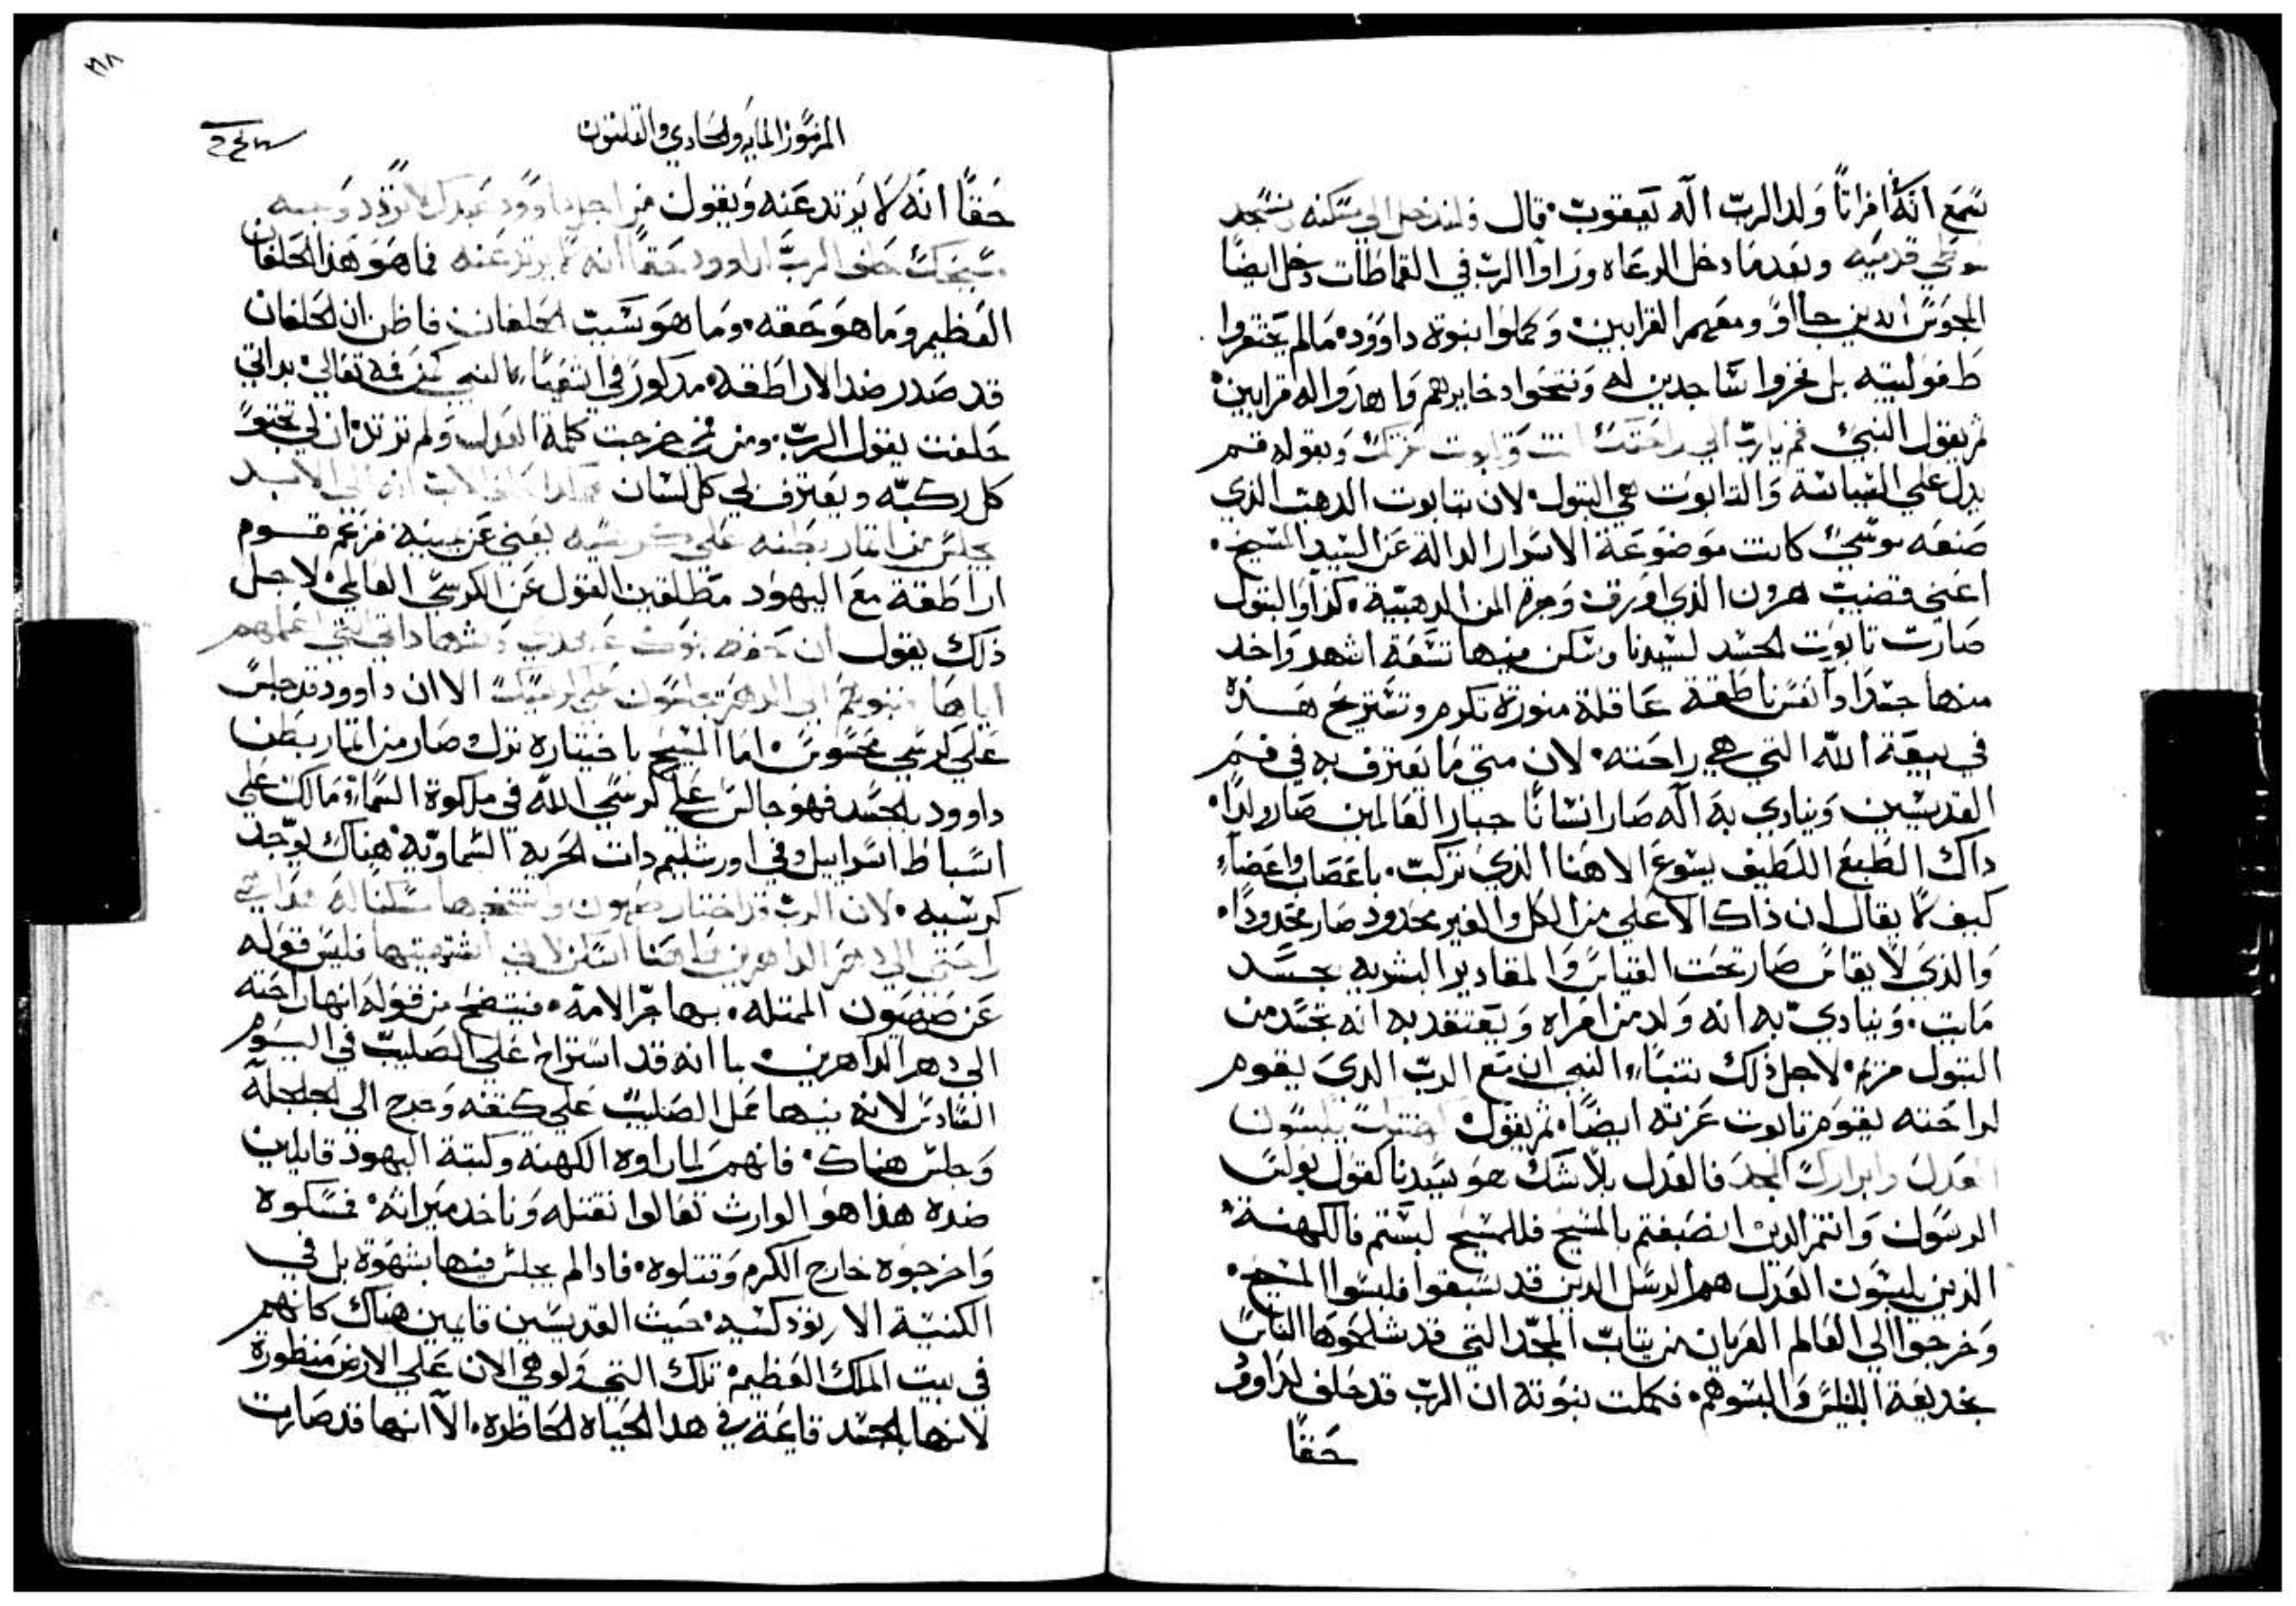 نسمع انه افراتا ولد الرب اله يعقوب. قال فلندخل الي مسكنه نسجد
موطي قدميه وبعدما دخل الرعاه وراوا الرب في القماطات دخل ايضا
المجوس الدين جااو ومعهم القرابين. وكملوا نبوة داوود. مالم يحتقروا
طفوليته بل نخروا ساجدين له وفتحوا دخايرهم واهدوا له قرابين.
ثم يقول النبي قم يارب الي راحتك انت وتابوت عزتك وبقوله قم
يدل علي القيامة والتابوت هي البتول. لان بتابوت الدهب الذي
صنعه موسي كانت موضوعة الاسرار الدالة عن السيد المسيح.
اعني قضيب هرون الذي اورق وجرة المن الدهبية. كذا والبتول
صارت تابوت الجسد لسيدنا وسكن فيها تسعة اشهر واخد
منها جسدا دا نفس ناطقة عاقلة منورة تكرم وتستريح هذه
في بيعة الله التي هي راحته. لان متي ما يعترف به في فم
القديسين وينادي به اله صار انسانا جبار العالمين صار ولدا.
داك الطبع اللطيف يسوع الاهنا الذي تركب. باعصاب واعضاء
كيف لا يقال ان ذاك الاعلي من الكل والغير محدود صار محدودا.
والذي لا يقاس صار تحت القياس والمقادير البشريه بجسد
مايت. وينادي به انه ولد من امراه ويعتقد به انه تجسد من
البتول مريم. لاجل ذلك يتنبا النبي ان مع الرب الدي يقوم
لراحته يقوم تابوت عزته ايضا. ثم يقول كهنتك يلبسون
العدل وابرارك المجد فالعدل بلا شك هو سيدنا كقول بولس
الرسول وانتم الدين انصبغتم بالمسيح فللمسيح لبستم فالكهنة
الذين يلبسون العدل هم الرسل الدين قد سبقوا فلبسوا المسيح.
وخرجوا الي العالم العريان من تياب المجد التي قد شلحوها الناس
بخديعة ابليس والبسوهم. فكملت نبوته ان الرب قد حلف لداوود
حقا
المزمور المايه والحادي والتلتون
حقا انه لا يرتد عنه ويقول من اجل داوود عبدك لا تردد وجه
مسيحك حلف الرب لداوود حقا انه لا يرتد عنه فما هو هذا الحلفان
العظيم وما هو حقه. وما هو سبب الحلفان فاظن ان الحلفان
قد صدر ضد الاراطقه. مدكور في اشعياء النبي كمن فمه تعالي بداتي
حلفت يقول الرب. ومن فمي خرجت كلمة العدل ولم ترتد. ان لي تجتو
كل ركبه ويعترف لي كل لسان
يجلس من اتمار بطنه علي كرسيه يعني عن بنيه فزعم قوم
اراطقة مع اليهود مطلقين القول عن الكرسي العالمي لاجل
ذلك يقول ان حفظ بنوك عهدي وشهاداتي التي اعلمهم
اياها فبنوهم الي الدهر يجلسون علي كرسيك الا ان داوود قد جلس
علي كرسي محسوس. اما المسيح باختياره نزل وصار من اتمار بطن
داوود بالجسد فهو جالس علي كرسي الله في ملكوة السماء. ومالك علي
اسباط اسراييل وفي اورشليم دات الحريه السماويه. هناك يوجد
كرسيه. لان الرب قد اختار صهيون وانتخبها مسكنا له هذا هي
راحتي الي دهر الداهرين هاهنا اسكن لاني اشتهيتها فليس قوله
عن صهيون الممتله. بها جر الامة. فيتضح من قوله انها راحته
الي دهر الداهرين. بما انه قد استراح علي الصليب في اليوم
السادس لانه فيها حمل الصليب علي كتفه وخرج الي الجلجلة
وجلس هناك. فانهم لما راوه الكهنة وكتبة اليهود قايلين
ضده هذا هو الوارث تعالوا نقتله وناخد ميراته. فمسكوه
واخرجوه خارج الكرم وقتلوه. فادا لم يجلس فيها بشهوة بل في
الكنيسة حيث القديسين قايمين هناك كانهم
في بيت الملك العظيم. تلك التي ولو هي الان علي الارض منظورة
لانها بالجسد قايمة في هدا الحياه الحاظره. الا انها قد صارت